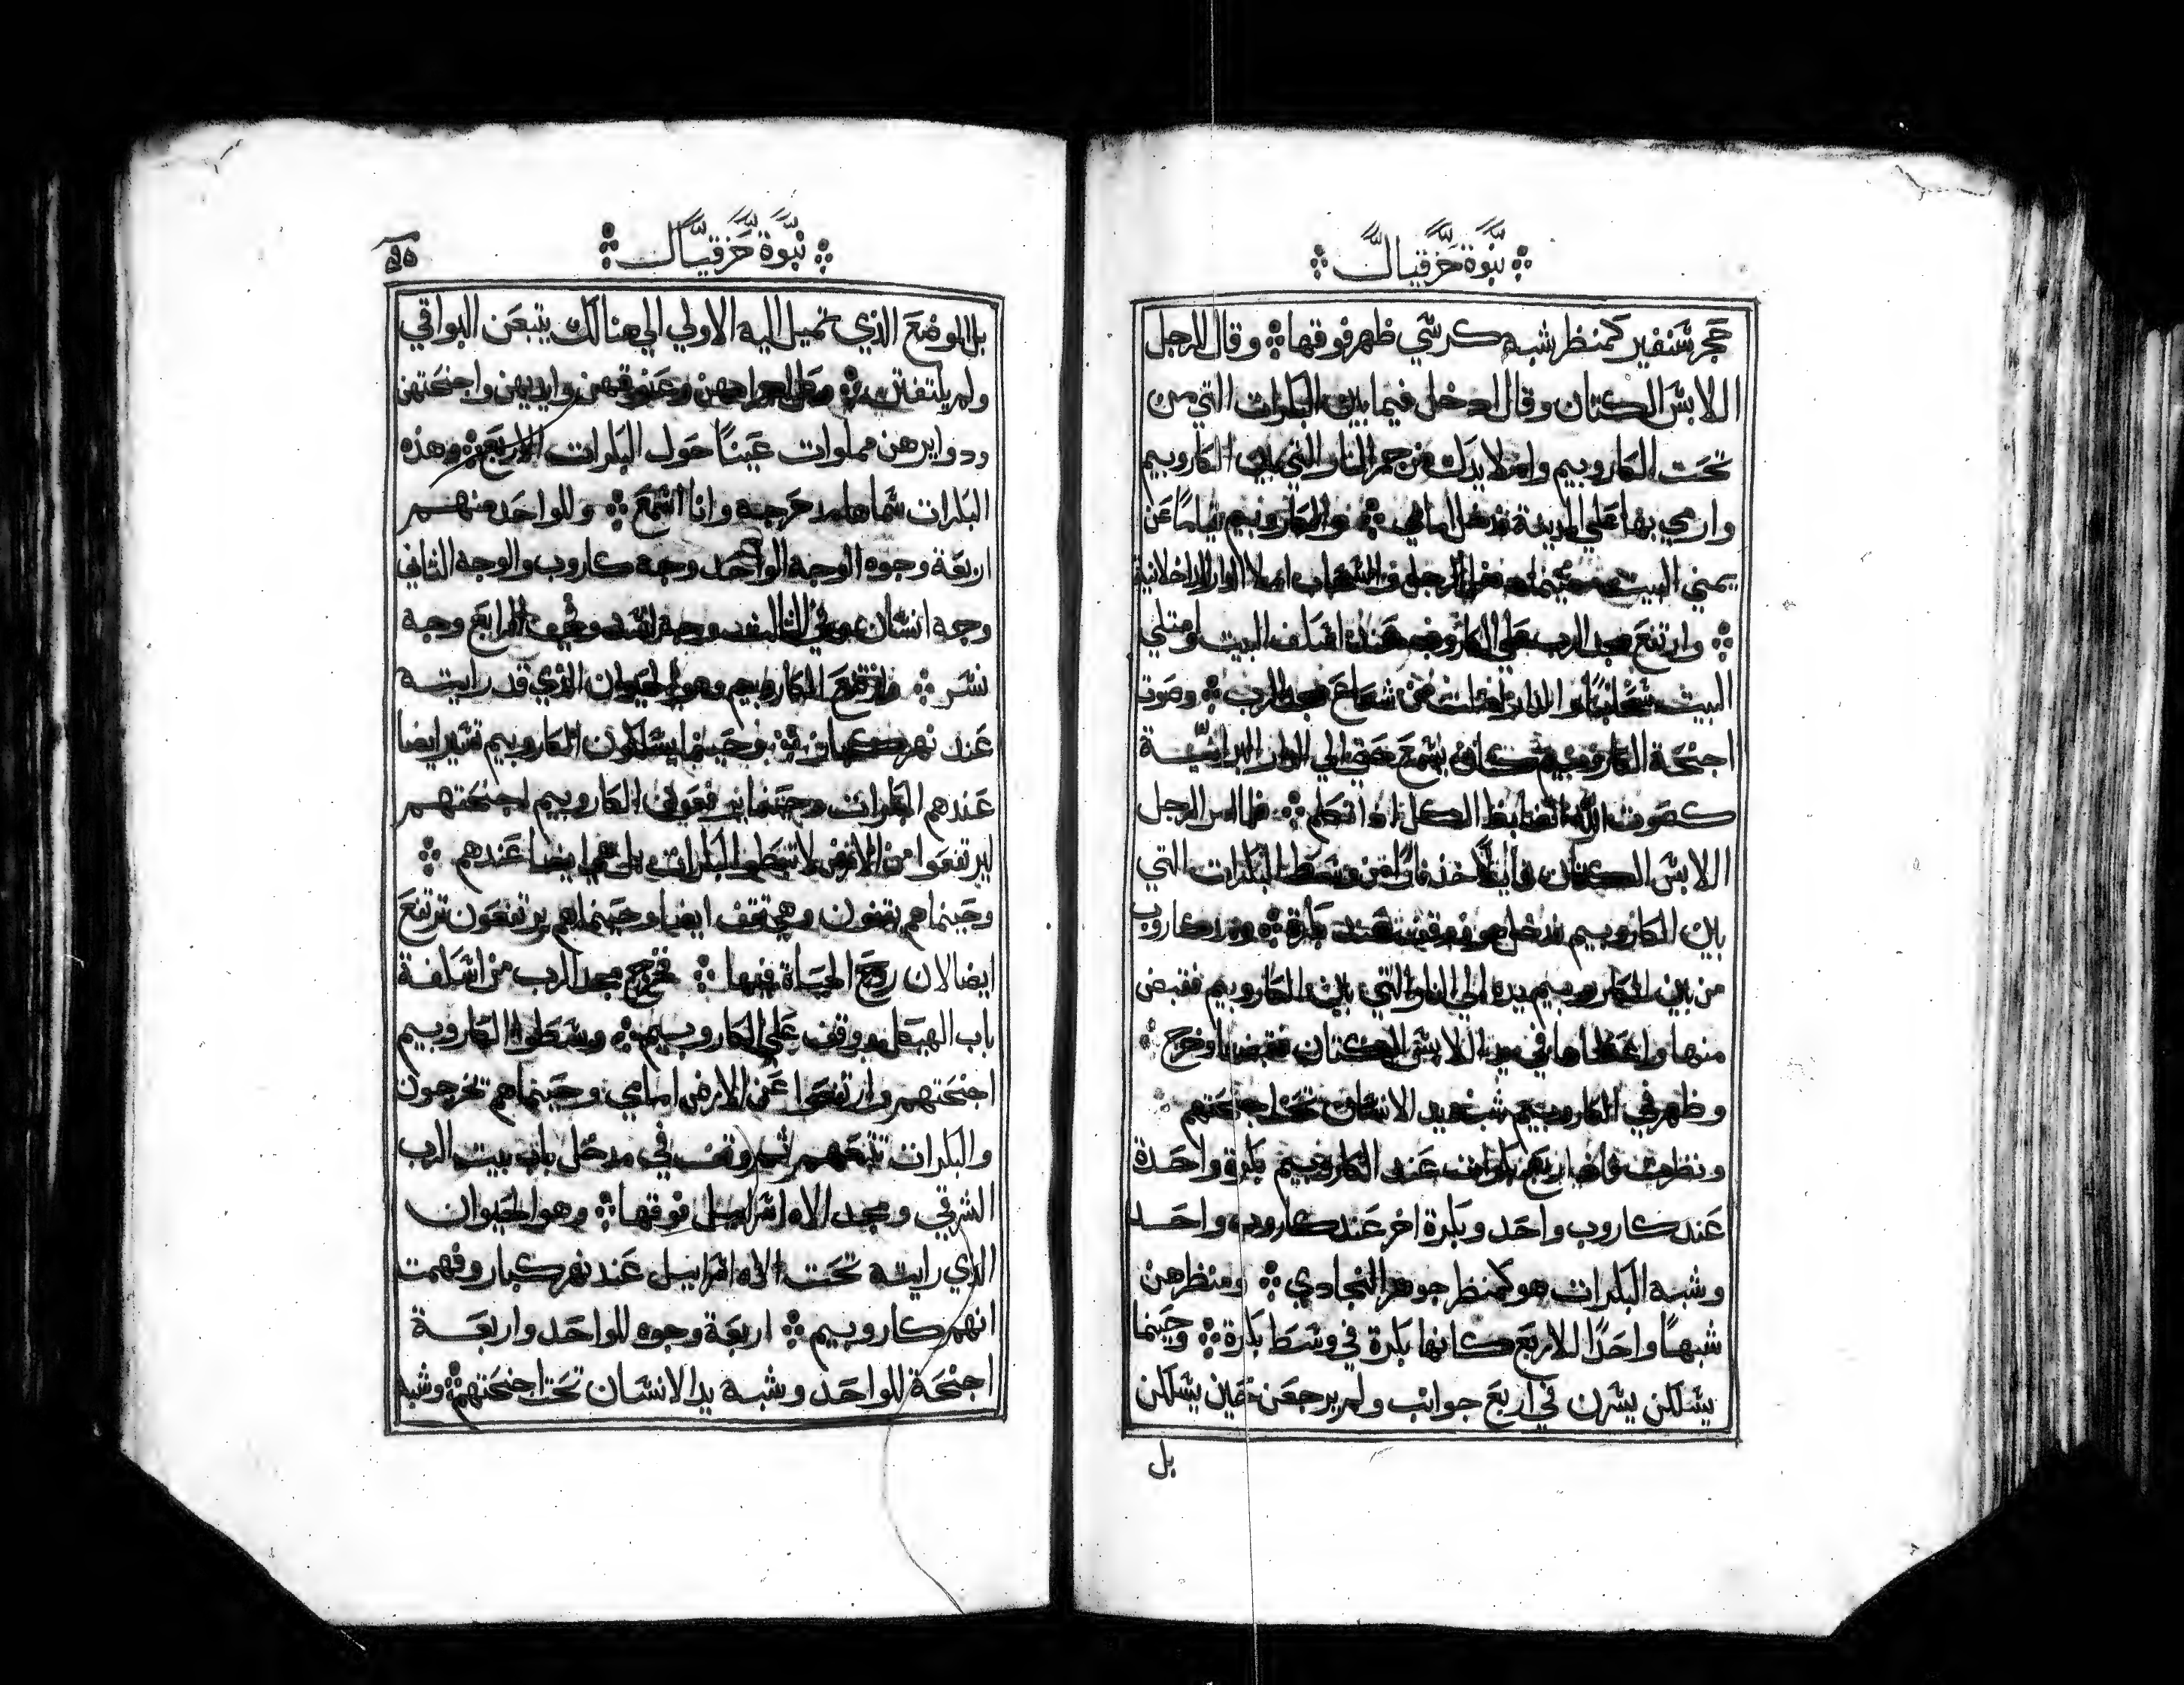 نبوة حزقيال
حجر سنفير كمنظر شبه كرسي ظهر فوقها وقال للرجل
اللابس الكتان وقال ادخل فيما بين البكرات التي من
تحت الكاروبيم واملا يدك من جمر النار التي بين الكاروبيم
وارمي بها على المدينة فدخل امامي والكاروبيم قياما عن
يمني البيت حينما دخل الرجل والسحاب املا الدار الداخلانية
وارتفع مجد الرب على الكاروب عند اسلف البيت وامتلي
البيت سحابا والدار امتلت من شعاع مجد الرب وصوت
اجنحة الكاروبيم كان يسمع حتى الي الدار البرانية
كصوت الله الضابط الكل اذا تكلم فلما امر الرجل
اللابس الكتان قايلا خذ نارا من وسط البكرات التي
بين الكاروبيم فدخل هو فوقف عند بكرة ومد كاروب
من بين الكاروبيم يده الي النار التي بين الكاروبيم فقبض
منها واعطاها في يد اللابس الكتان فقبضها وخرج
وظهر في الكاروبيم شبه يد الانسان تحت اجنحتهم
ونظرت فاذا اربع بكرات عند الكاروبيم بكرة واحدة
عند كاروب واحد وبكرة اخر عند كاروب واحد
وشبه البكرات هو كمنظر جوهر النجادي ومنظرهن
شبها واحدا للاربع كانها بكرة في وسط بكرة وحينما
يسلكن يسرن في اربع جوانب ولم يرجعن حين يسلكن
بل
نبوة حزقيال
بل الموضع الذي تميل اليه الاولي الي هنالك يتبعن البواقي
ولم يلتفتن وكل اجسامهن وعنوقهن وايديهن واجنحتهن
ودوايرهن مملوات عينا حول البكرات الاربع وهذه
البكرات سماها مدحرجه وانا اسمع وللواحد منهم
اربعة وجوه الوجه الواحد وجه كاروب والوجه الثاني
وجه انسان وفي الثالث وجه اسد وفي الرابع وجه
نسر وارتفع الكاروبيم وهو الحيوان الذي قد رايته
عند نهر كبار وحينما يسلكون الكاروبيم تسير ايضا
عندهم البكرات وحينما يرفعون الكاروبيم اجنحتهم
ليرتفعوا من الارض لا تبطوا البكرات بل هي ايضا عندهم
وحينما هم يقفون وهي تقف ايضا وحينما هم يرتفعون ترتفع
ايضا لان روح الحياة فيها فخرج مجد الرب من اسلفة
باب الهيكل ووقف علي الكاروبيم وبسطوا الكاروبيم
اجنحتهم وارتفعوا عن الارض امامي وحينما هم تخرجون
والبكرات تتبعهم ثم وقف في مدخل باب بيت الرب
الشرقي ومجد الاه اسراييل فوقها وهو الحيوان
الذي رايته تحت الاه اسراييل عند نهر كبار وفهمت
انهم كاروبيم اربعة وجوه للواحد واربعة
اجنحة للواحد وشبه يد الانسان تحت اجنحتهم وشبه